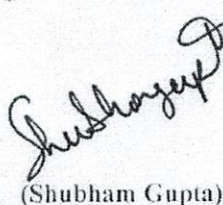 Shubhamgupta
(Shubham Gupta)